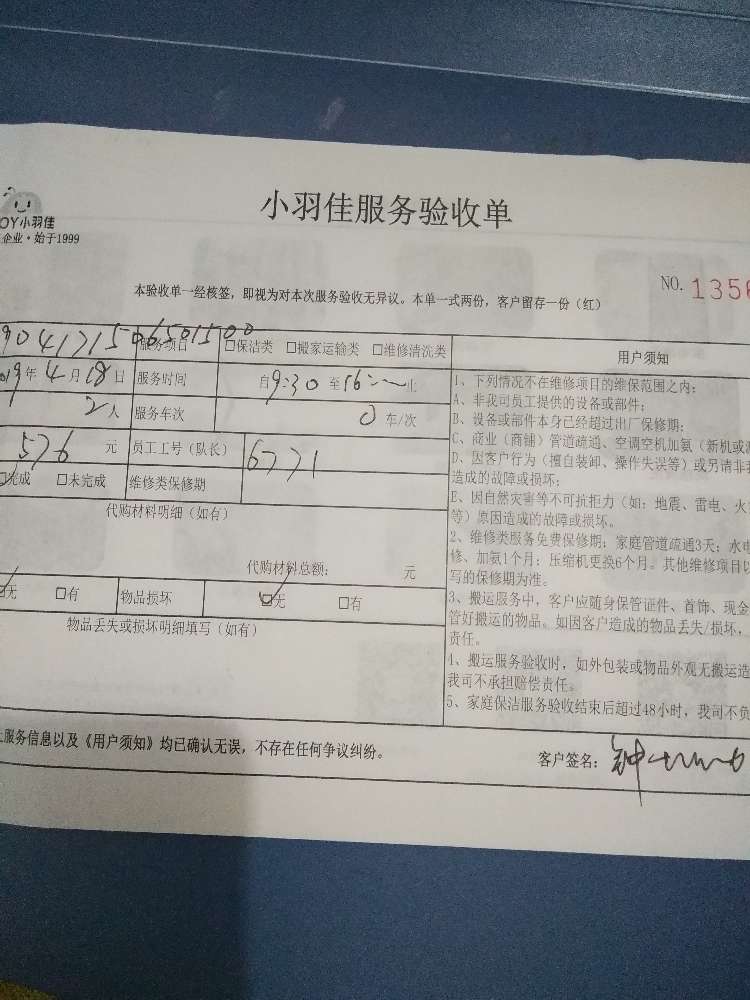 小羽佳服务验收单
OY小羽佳
企业·始于1999
NO. 1356
本验收单一经核签，即视为对本次服务验收无异议。本单一式两份，客户留存一份（红）
904171506501500 服务项目 □保洁类 □搬家运输类 □维修清洗类
019年4月18日 服务时间 自9:30至16:~止
2人 服务车次 0车/次
576元 员工工号（队长） 6771
☑完成 □未完成 维修类保修期
代购材料明细（如有）
代购材料总额： 元
☑无 □有 物品损坏 ☑无 □有
物品丢失或损坏明细填写（如有）
用户须知
1、下列情况不在维修项目的维保范围之内：
A、非我司员工提供的设备或部件；
B、设备或部件本身已经超过出厂保修期；
C、商业（商铺）管道疏通、空调空机加氨（新机或
D、因客户行为（擅自装卸、操作失误等）或另请非
造成的故障或损坏；
E、因自然灾害等不可抗拒力（如：地震、雷电、火
等）原因造成的故障或损坏。
2、维修类服务免费保修期：家庭管道疏通3天；水电
修、加氨1个月；压缩机更换6个月。其他维修项目以
写的保修期为准。
3、搬运服务中，客户应随身保管证件、首饰、现金
管好搬运的物品。如因客户造成的物品丢失/损坏，
责任。
4、搬运服务验收时，如外包装或物品外观无搬运造
我司不承担赔偿责任。
5、家庭保洁服务验收结束后超过48小时，我司不负
服务信息以及《用户须知》均已确认无误，不存在任何争议纠纷。
客户签名：钟